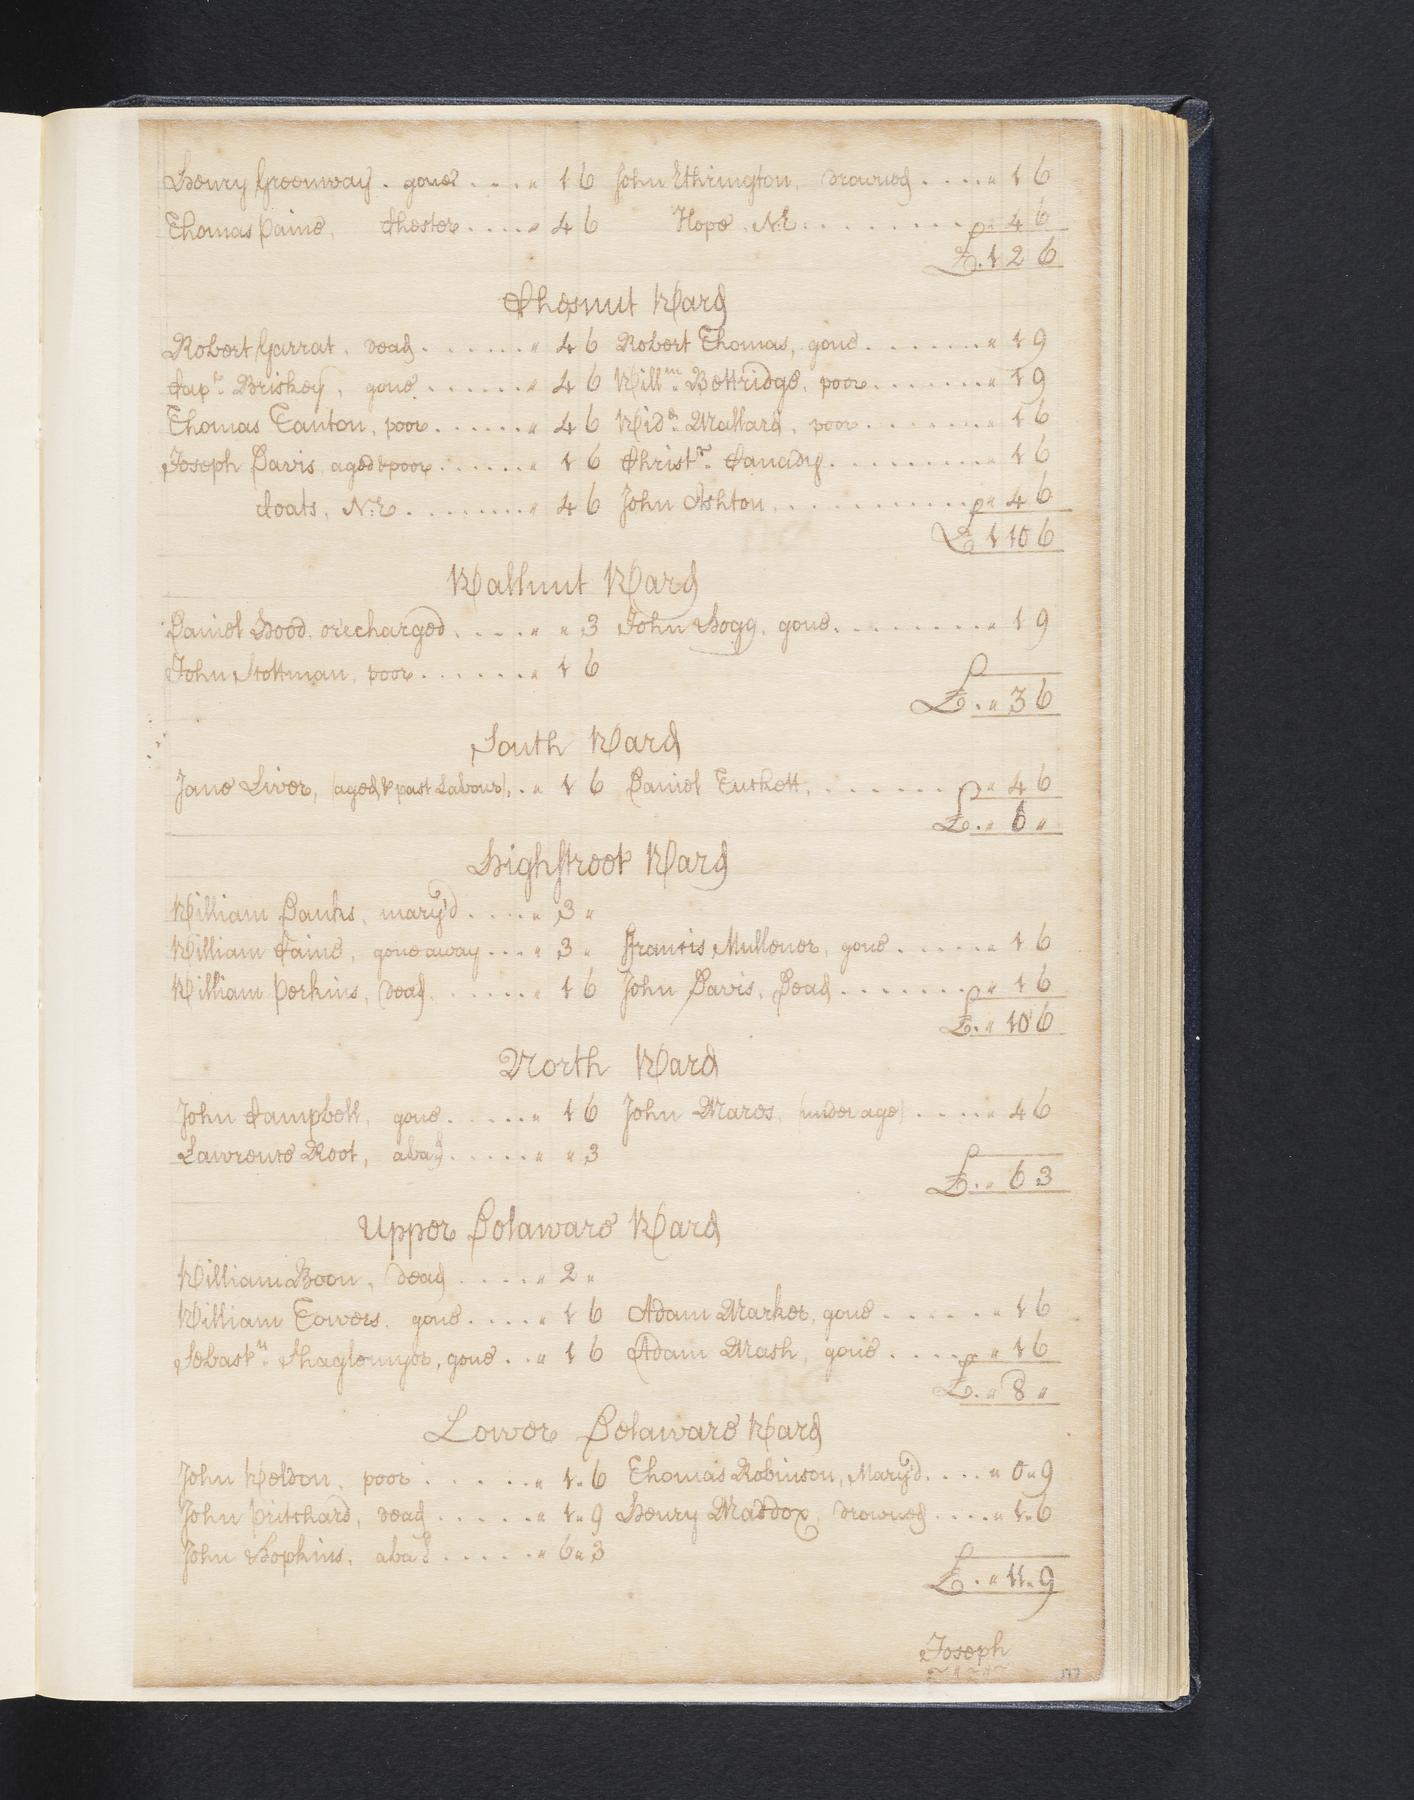 Henry Greenway . gone . . . . „ 1 6 John Ethrington, Drowned . . . . „ 1 6
Thomas Paine, Chester . . . . „ 4 6 Hope, N:E . . . . . . . . „ 4 6
£ . 1 2 6
Chesnut Ward
Robert Garrat, Dead . . . . . . „ 4 6 Robert Thomas, gone . . . . . . . „ 1 9
Capt. Briskey, gone . . . . . . „ 4 6 Willm. Bettridge, poor . . . . . . . „ 1 9
Thomas Tanton, poor . . . . . . „ 4 6 Widw. Mallard, poor . . . . . . . „ 1 6
Joseph Davis, aged & poor . . . . . . „ 1 6 Christr. Canady . . . . . . . . . „ 1 6
Coats, N:E . . . . . . . . „ 4 6 John Ashton, . . . . . . . . . . . „ 4 6
£ 1 10 6
Wallnut Ward
Daniel Hood, orecharged . . . . „ „ 3 John Hogg, gone . . . . . . . . „ 1 9
John Stottman, poor . . . . . . „ 1 6
£ . „ 3 6
South Ward
Jane Liver, (aged & past Labour), . „ 1 6 Daniel Tuckett, . . . . . . . „ 4 6
£ . „ 6 „
Highstreet Ward
William Banks, mary'd . . . . „ 3 „
William Caine, gone away . . . „ 3 „ Francis Mullener, gone . . . . . „ 1 6
William Perkins, Dead . . . . . . „ 1 6 John Davis, Dead . . . . . . . „ 1 6
£ . „ 10 6
North Ward
John Campbell, gone . . . . . „ 1 6 John Mares, (under age) . . . . „ 4 6
Lawrence Root, abad . . . . . „ „ 3
£ . „ 6 3
Upper Delaware Ward
William Boon, Dead . . . . . „ 2 „
William Towers, gone . . . . „ 1 6 Adam Marker, gone . . . . . . „ 1 6
Sebastn. Shaglemyer, gone . . „ 1 6 Adam Mash, gone . . . . . „ 1 6
£ . „ 8 „
Lower Delaware Ward
John Weldon, poor . . . . . . „ 1 „ 6 Thomas Robinson, Mary'd . . . . „ 0 „ 9
John Pritchard, Dead . . . . . „ 1 „ 9 Henry Maddox, Drowned . . . . „ 1 „ 6
John Hopkins, abad . . . . . „ 6 „ 3
£ . „ 11 „ 9
Joseph